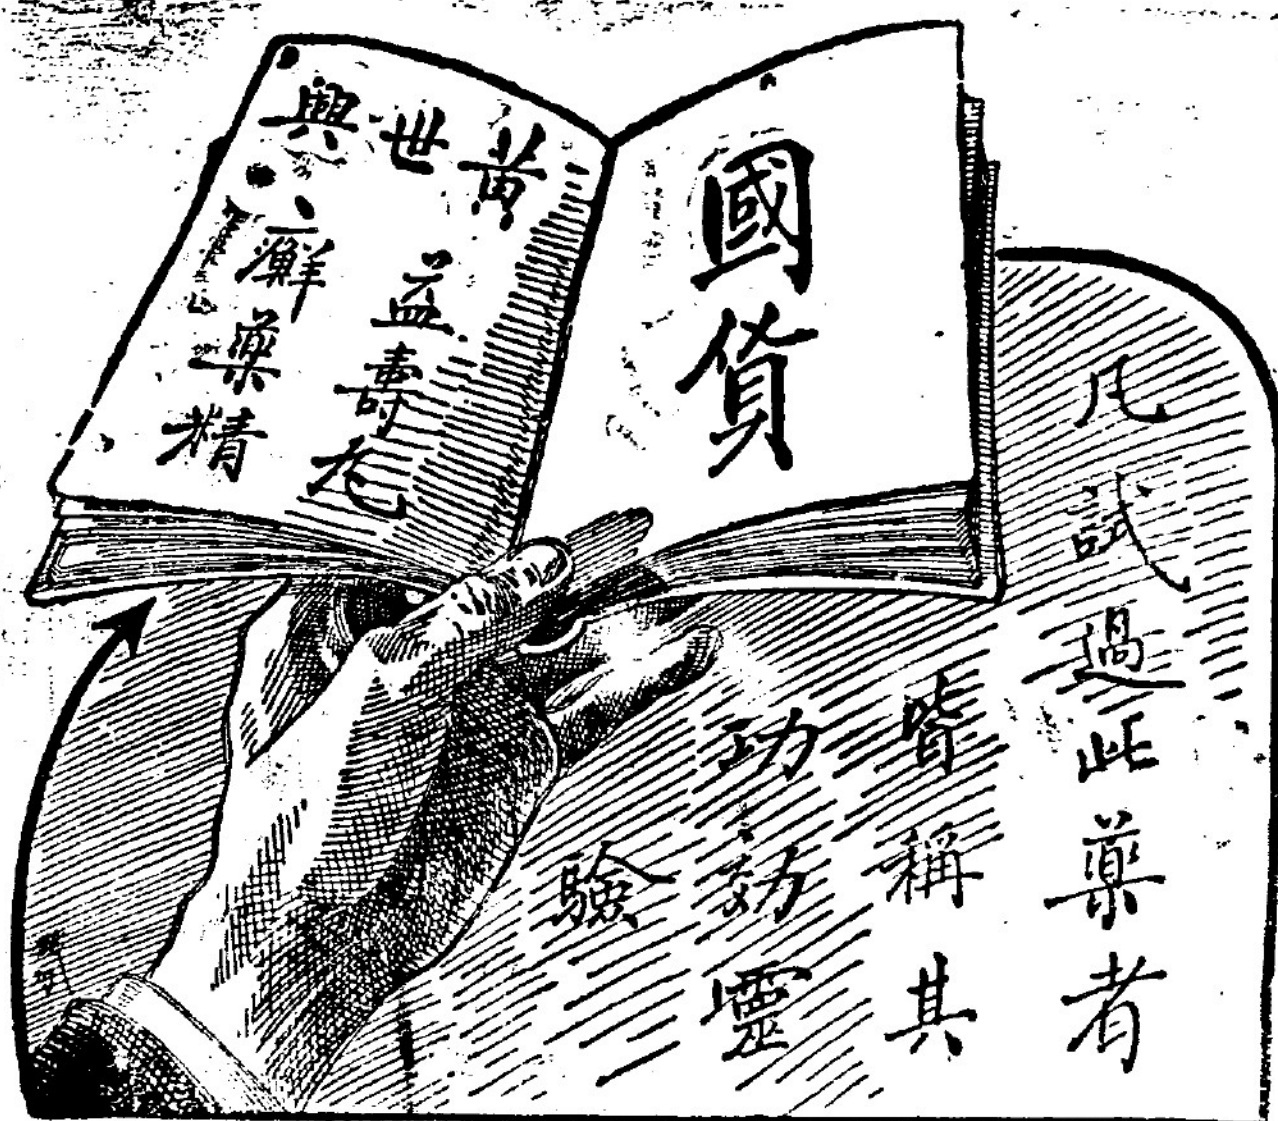 國貨
黄世興
益壽丸
癬薬精
凡試過此薬者
皆稱其
功効靈
驗